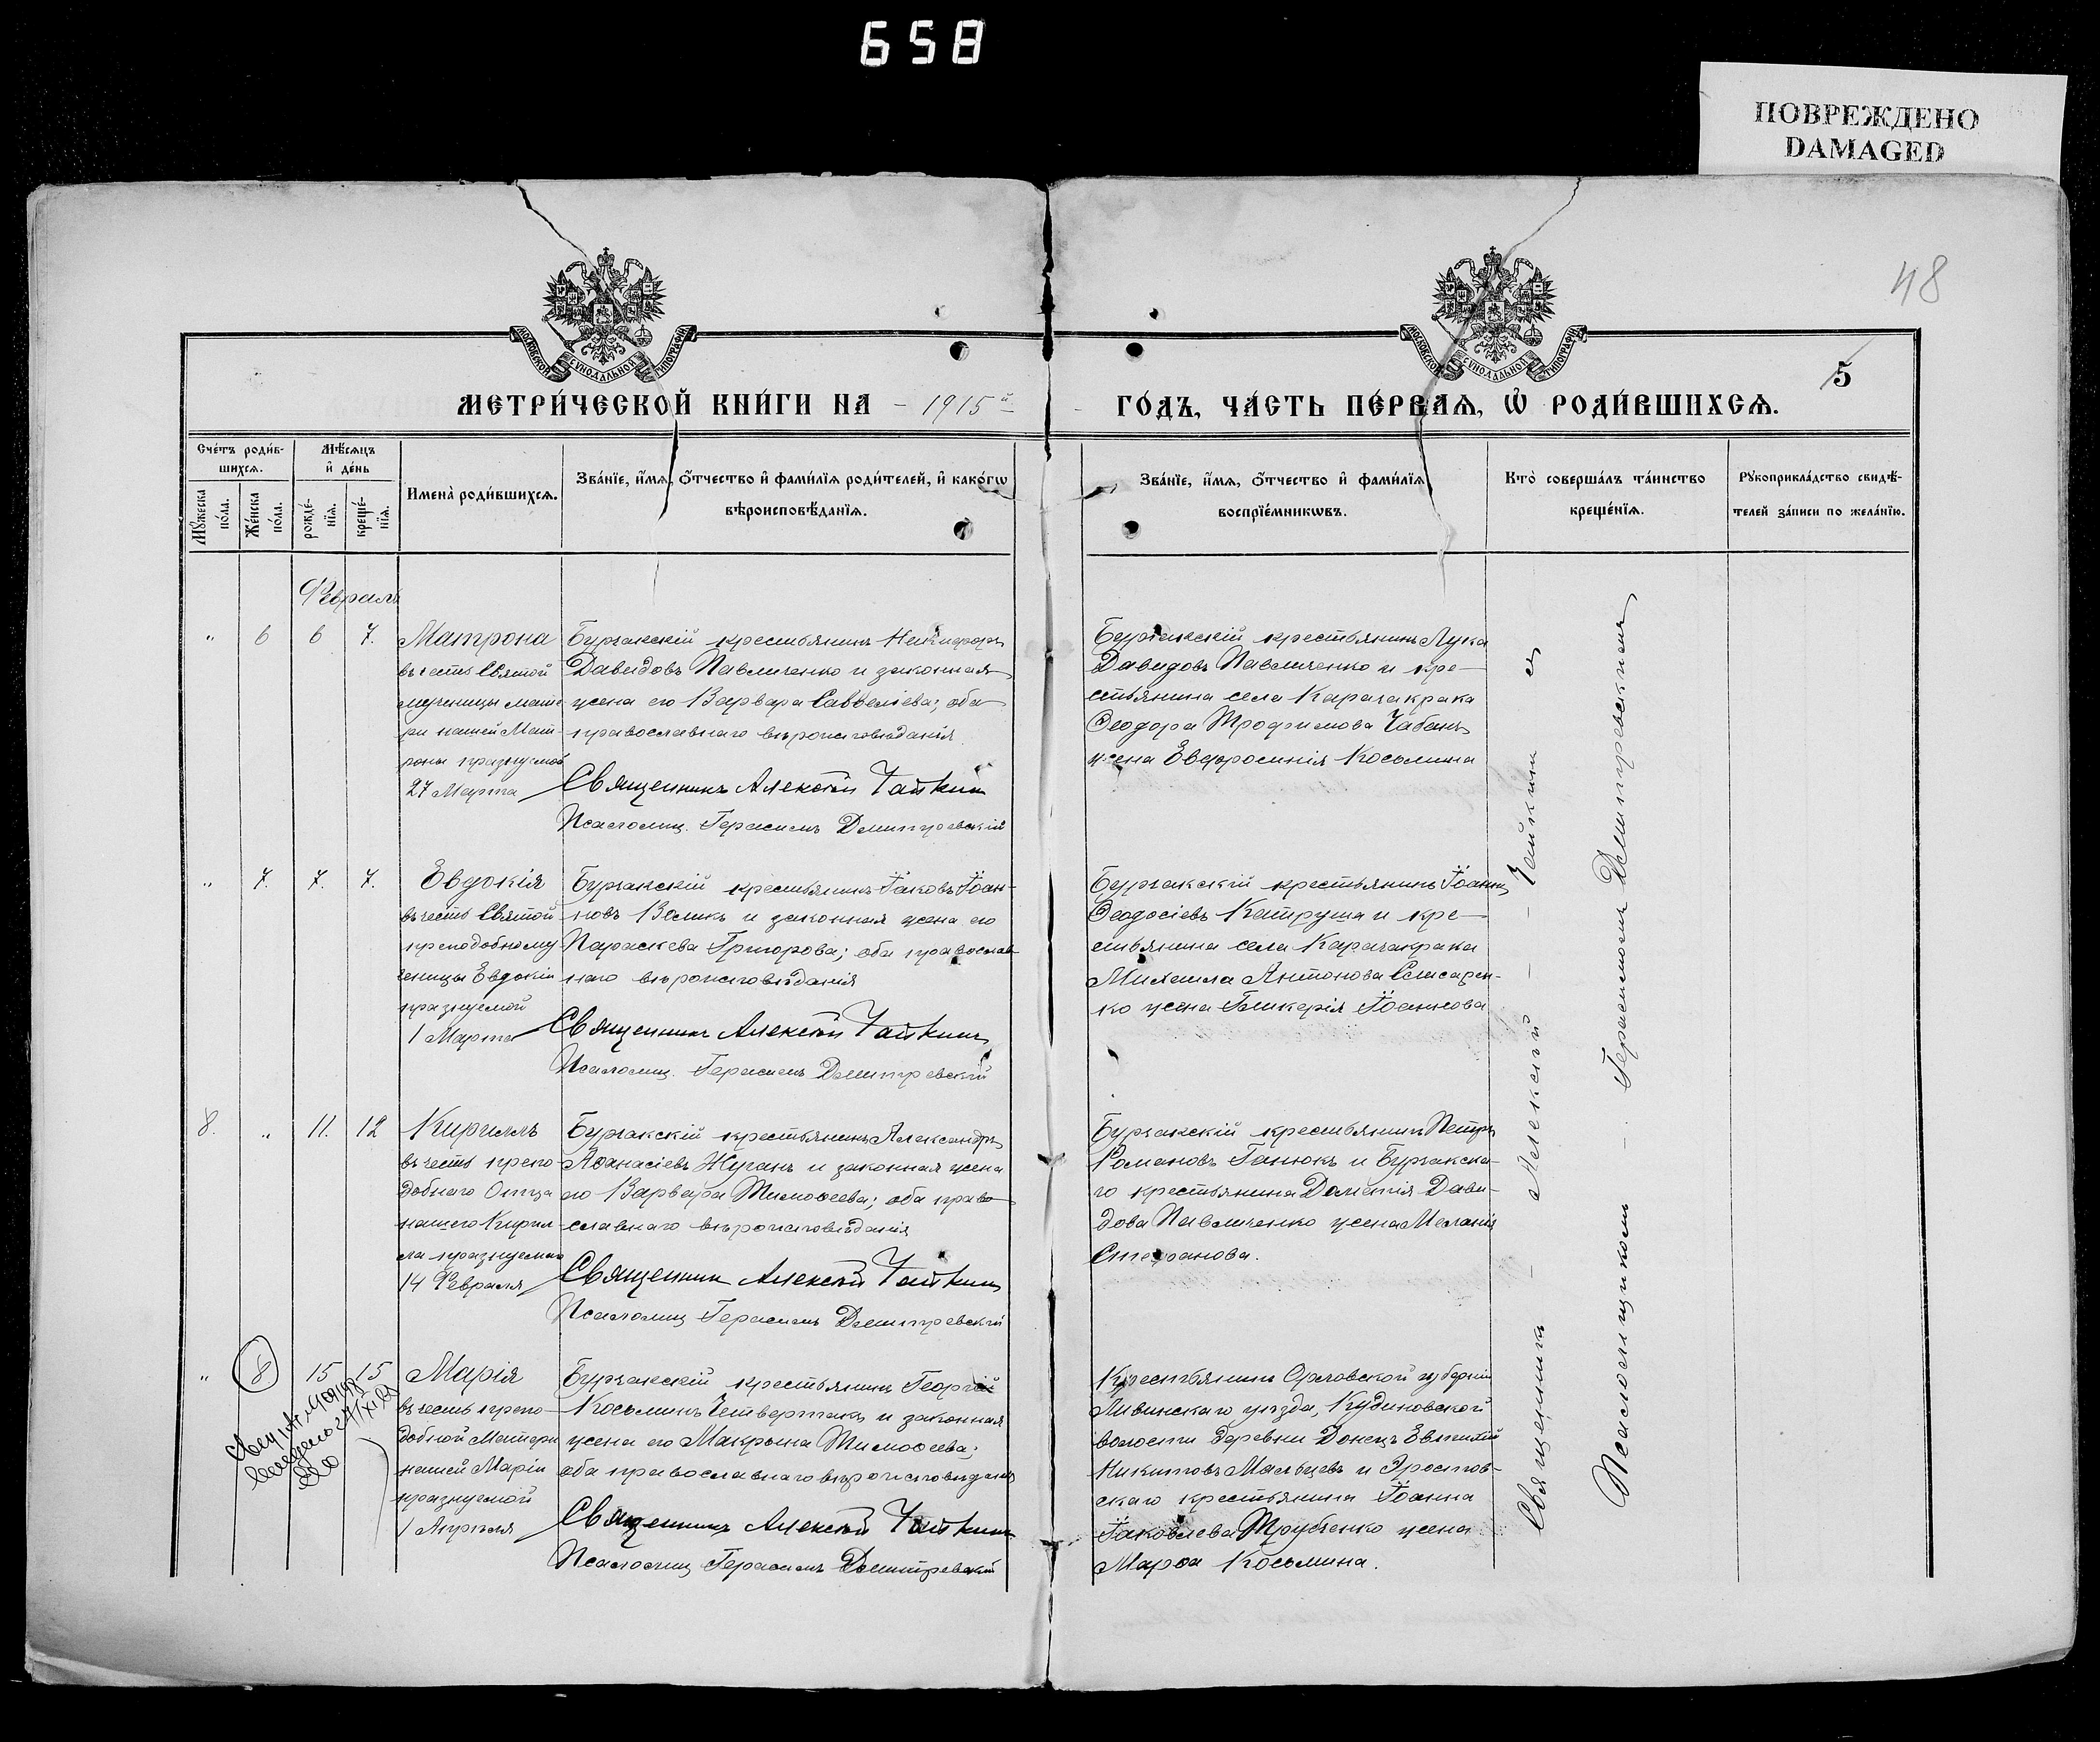 658
ПОВРЕЖДЕНО
DAMAGED
48
5
МОСКОВСКОЙ СѴНОДАЛЬНОЙ ТИПОГРАФІИ
МОСКОВСКОЙ СѴНОДАЛЬНОЙ ТИПОГРАФІИ
МЕТРИ́ЧЕСКОЙ КНИ́ГИ НА - 1915й -
ГО́ДЪ, ЧА́СТЬ ПЕ́РВАѦ, Ѡ҆ РОДИ́ВШИХСѦ.
Сче́тъ роди́в-
шихсѧ.
Мѣ́сѧцъ
и҆ де́нь
Мꙋ́жеска
по́ла.
Же́нска
по́ла.
рожде́-
нїѧ.
креще́-
нїѧ.
Имена̀ роди́вшихсѧ.
Зва́нїе, и҆́мѧ, ѻ҆́тчество и҆ фами́лїѧ роди́телей, и҆ како́гѡ
вѣроисповѣ́данїѧ.
Зва́нїе, и҆́мѧ, ѻ҆́тчество и҆ фами́лїѧ
воспрїе́мникѡвъ.
Кто̀ соверша́лъ та́инство
креще́нїѧ.
Рꙋкоприкла́дство свидѣ́-
телей за́писи по жела́нїю.
Февраль
" 6 6 7.
Матрона
въ честь Святой
мученицы мате
ри нашей Мат-
роны празнуемой
27 Марта
Бурчакскій крестьянинъ Никифоръ
Давидовъ Павличенко и законная
жена его Варвара Савелiева; оба
православнаго вѣроисповѣданія
Священникъ Алексѣй Чайкин
Псаломщ. Герасимъ Дмитревскій
Бурчакскій крестьянинъ Лука
Давидовъ Павличенко и кре-
стьянина села Карачакрака
Ѳеодора Трофимова Чабанъ
жена Евфросинія Косьмина
" 7. 7. 7.
Евдокія
въ честь Святой
преподобному-
ченицы Евдокіи
празнуемой
1 Марта
Бурчакскій крестьянинъ Іаковъ Іоан-
новъ Великъ и законная жена его
Параскева Григорова; оба православ-
наго вѣроисповѣданія
Священникъ Алексѣй Чайкинъ
Псаломщ. Герасимъ Дмитревскій
Бурчакскій крестьянинъ Іоаннъ
Ѳеодосіевъ Катруша и кре-
стьянина села Карачакрака
Михаила Антонова Слисарен-
ко жена Гликерія Іоаннова
8. " 11. 12
Кириллъ
въ честь препо-
добнаго Отца
нашего Кирил-
ла празнуемаго
14 Февраля
Бурчакскій крестьянинъ Александръ
Аѳанасіевъ Жуганъ и законная жена
его Варвара Тимоѳеева; оба право-
славнаго вѣроисповѣданія
Священник Алексѣй Чайкинъ
Псаломщ Герасимъ Дмитревскій
Бурчакскій крестьянинъ Петръ
Романовъ Ганюкъ и Бурчакска-
го крестьянина Даметія Дави-
дова Павличенко жена Меланія
Стефанова.
" 8 15 15
Марія
въ честь препо-
добной Матери
нашей Маріи
празнуемой
1 Апрѣля
Бурчакскій крестьянинъ Георгій
Косьминъ Четвертакъ и законная
жена его Макрына Тимоѳеева;
оба православнаго вѣроисповѣданія
Священникъ Алексѣй Чайкинъ
Псаломщ Герасимъ Дмитревскій
Крестьянинъ Орловской губерніи
Ливинскаго уѣзда, Кудиновской
волости деревни Донецъ Евтихій
Никитовъ Мальцевъ и Эрастов-
скаго крестьянина Іоанна
Іаковлева Трубченко жена
Марѳа Косьмина.
Священникъ - Алексѣй - Чайкинъ съ
Псаломщикомъ - Герасимомъ Дмитревскимъ